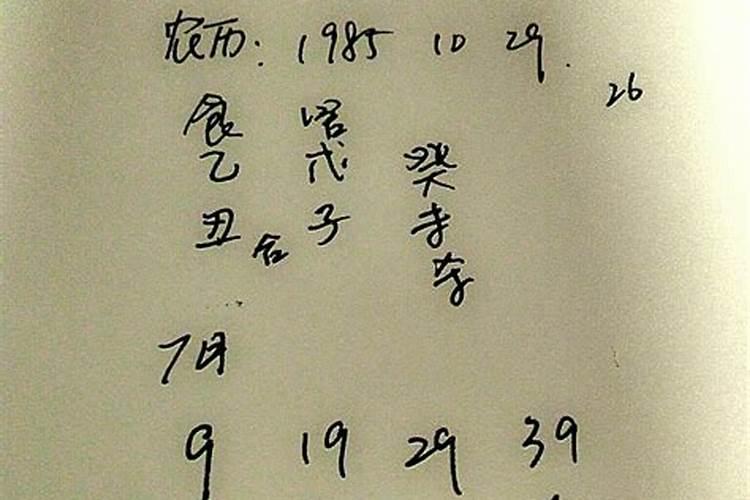 农历: 1985 10 29.
26
食 官
乙 戊 癸
丑 合 子 未
杀
7月
9 19 29 39